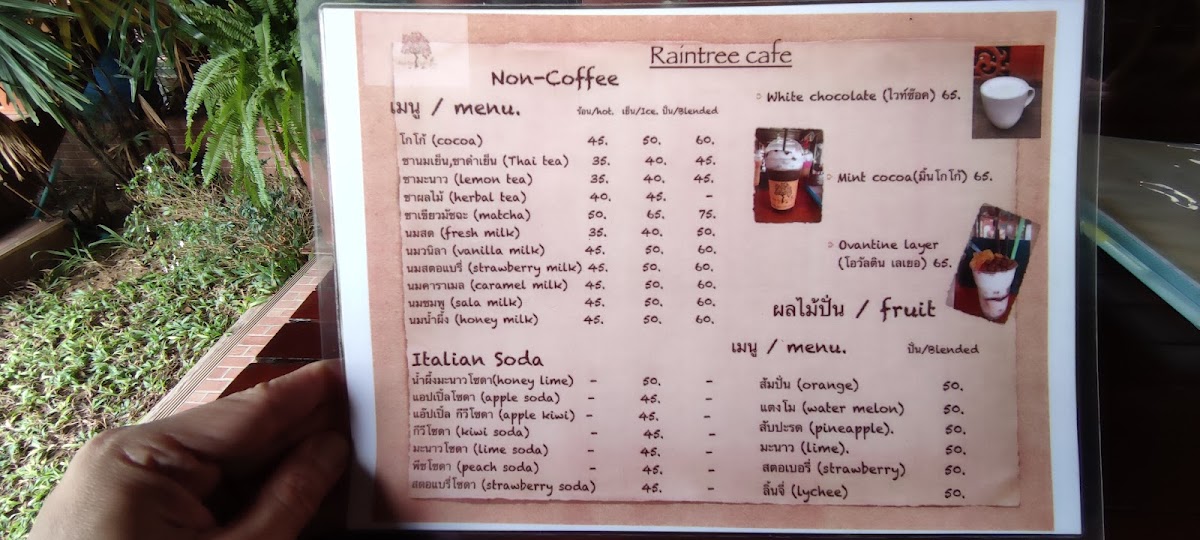 Raintree cafe
Non-Coffee
เมนู / menu.
ร้อน/hot. เย็น/Ice. ปั่น/Blended
โกโก้ (cocoa) 45. 50. 60.
ชานมเย็น,ชาดำเย็น (Thai tea) 35. 40. 45.
ชามะนาว (lemon tea) 35. 40. 45.
ชาผลไม้ (herbal tea) 40. 45. -
ชาเขียวมัชฉะ (matcha) 50. 65. 75.
นมสด (fresh milk) 35. 40. 50.
นมวนิลา (vanilla milk) 45. 50. 60.
นมสตอแบรี่ (strawberry milk) 45. 50. 60.
นมคาราเมล (caramel milk) 45. 50. 60.
นมชมพู (sala milk) 45. 50. 60.
นมน้ำผึ้ง (honey milk) 45. 50. 60.
Italian Soda
น้ำผึ้งมะนาวโซดา(honey lime) - 50. -
แอปเปิ้ลโซดา (apple soda) - 45. -
แอ๊ปเปิ้ล กีวีโซดา (apple kiwi) - 45. -
กีวีโซดา (kiwi soda) - 45. -
มะนาวโซดา (lime soda) - 45. -
พีชโซดา (peach soda) - 45. -
สตอแบรี่โซดา (strawberry soda) 45. -
White chocolate (ไวท์ช๊อค) 65.
Mint cocoa(มิ้นโกโก้) 65.
Ovantine layer
(โอวัลติน เลเยอ) 65.
ผลไม้ปั่น / fruit
เมนู / menu. ปั่น/Blended
ส้มปั่น (orange) 50.
แตงโม (water melon) 50.
สับปะรด (pineapple). 50.
มะนาว (lime). 50.
สตอเบอรี่ (strawberry) 50.
ลิ้นจี่ (lychee) 50.